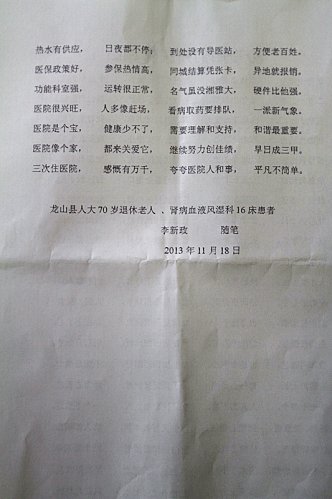 热水有供应， 日夜都不停； 到处设有导医站， 方便老百姓。
医保政策好， 参保热情高， 同城结算凭张卡， 异地就报销。
功能科室强， 运转很正常， 名气虽没湘雅大， 硬件比他强。
医院很兴旺， 人多像赶场， 看病取药要排队， 一派新气象。
医院是个宝， 健康少不了， 需要理解和支持， 和谐最重要。
医院像个家， 都来关爱它， 继续努力创佳绩， 早日成三甲。
三次住医院， 感慨有万千， 夸夸医院人和事， 平凡不简单。
龙山县人大 70 岁退休老人 、肾病血液风湿科 16 床患者
李新政 随笔
2013 年 11 月 18 日